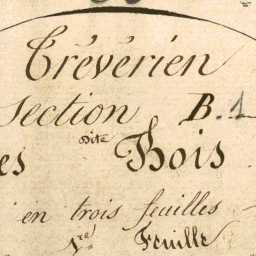 Tréverien
Section B.1
dite
es Bois
en trois feuilles
1re Feuille